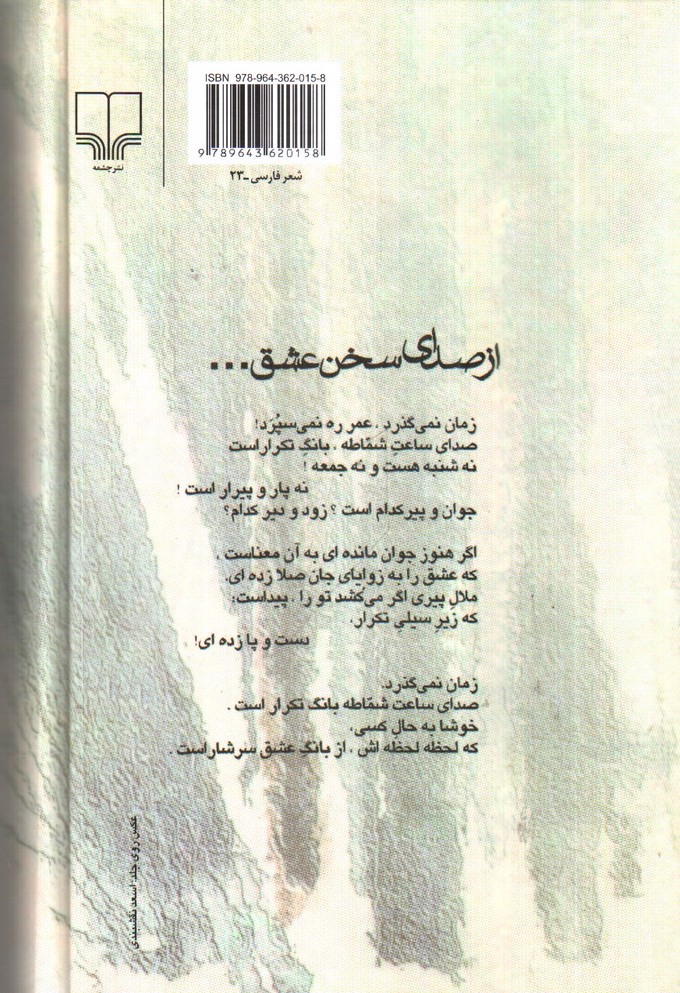 ISBN 978-964-362-015-8
9 789643 620158
نشر چشمه
شعر فارسی ـ۲۳
از صدای سخن عشق ...
زمان نمی‌گذرد ، عمر ره نمی‌سپُرَد!
صدای ساعتِ شمّاطه ، بانگِ تکرار است
نه شنبه هست و نه جمعه !
نه پار و پیرار است !
جوان و پیر کدام است ؟ زود و دیر کدام؟
اگر هنوز جوان مانده ای به آن معناست ،
که عشق را به زوایای جان صلا زده ای.
ملالِ پیری اگر می‌کشد تو را ، پیداست:
که زیرِ سیلیِ تکرار،
دست و پا زده ای!
زمان نمی‌گذرد.
صدای ساعت شمّاطه بانگ تکرار است .
خوشا به حالِ کسی،
که لحظه لحظه اش ، از بانگِ عشق سرشار است .
عکس روی جلد: اسعد نقشبندی